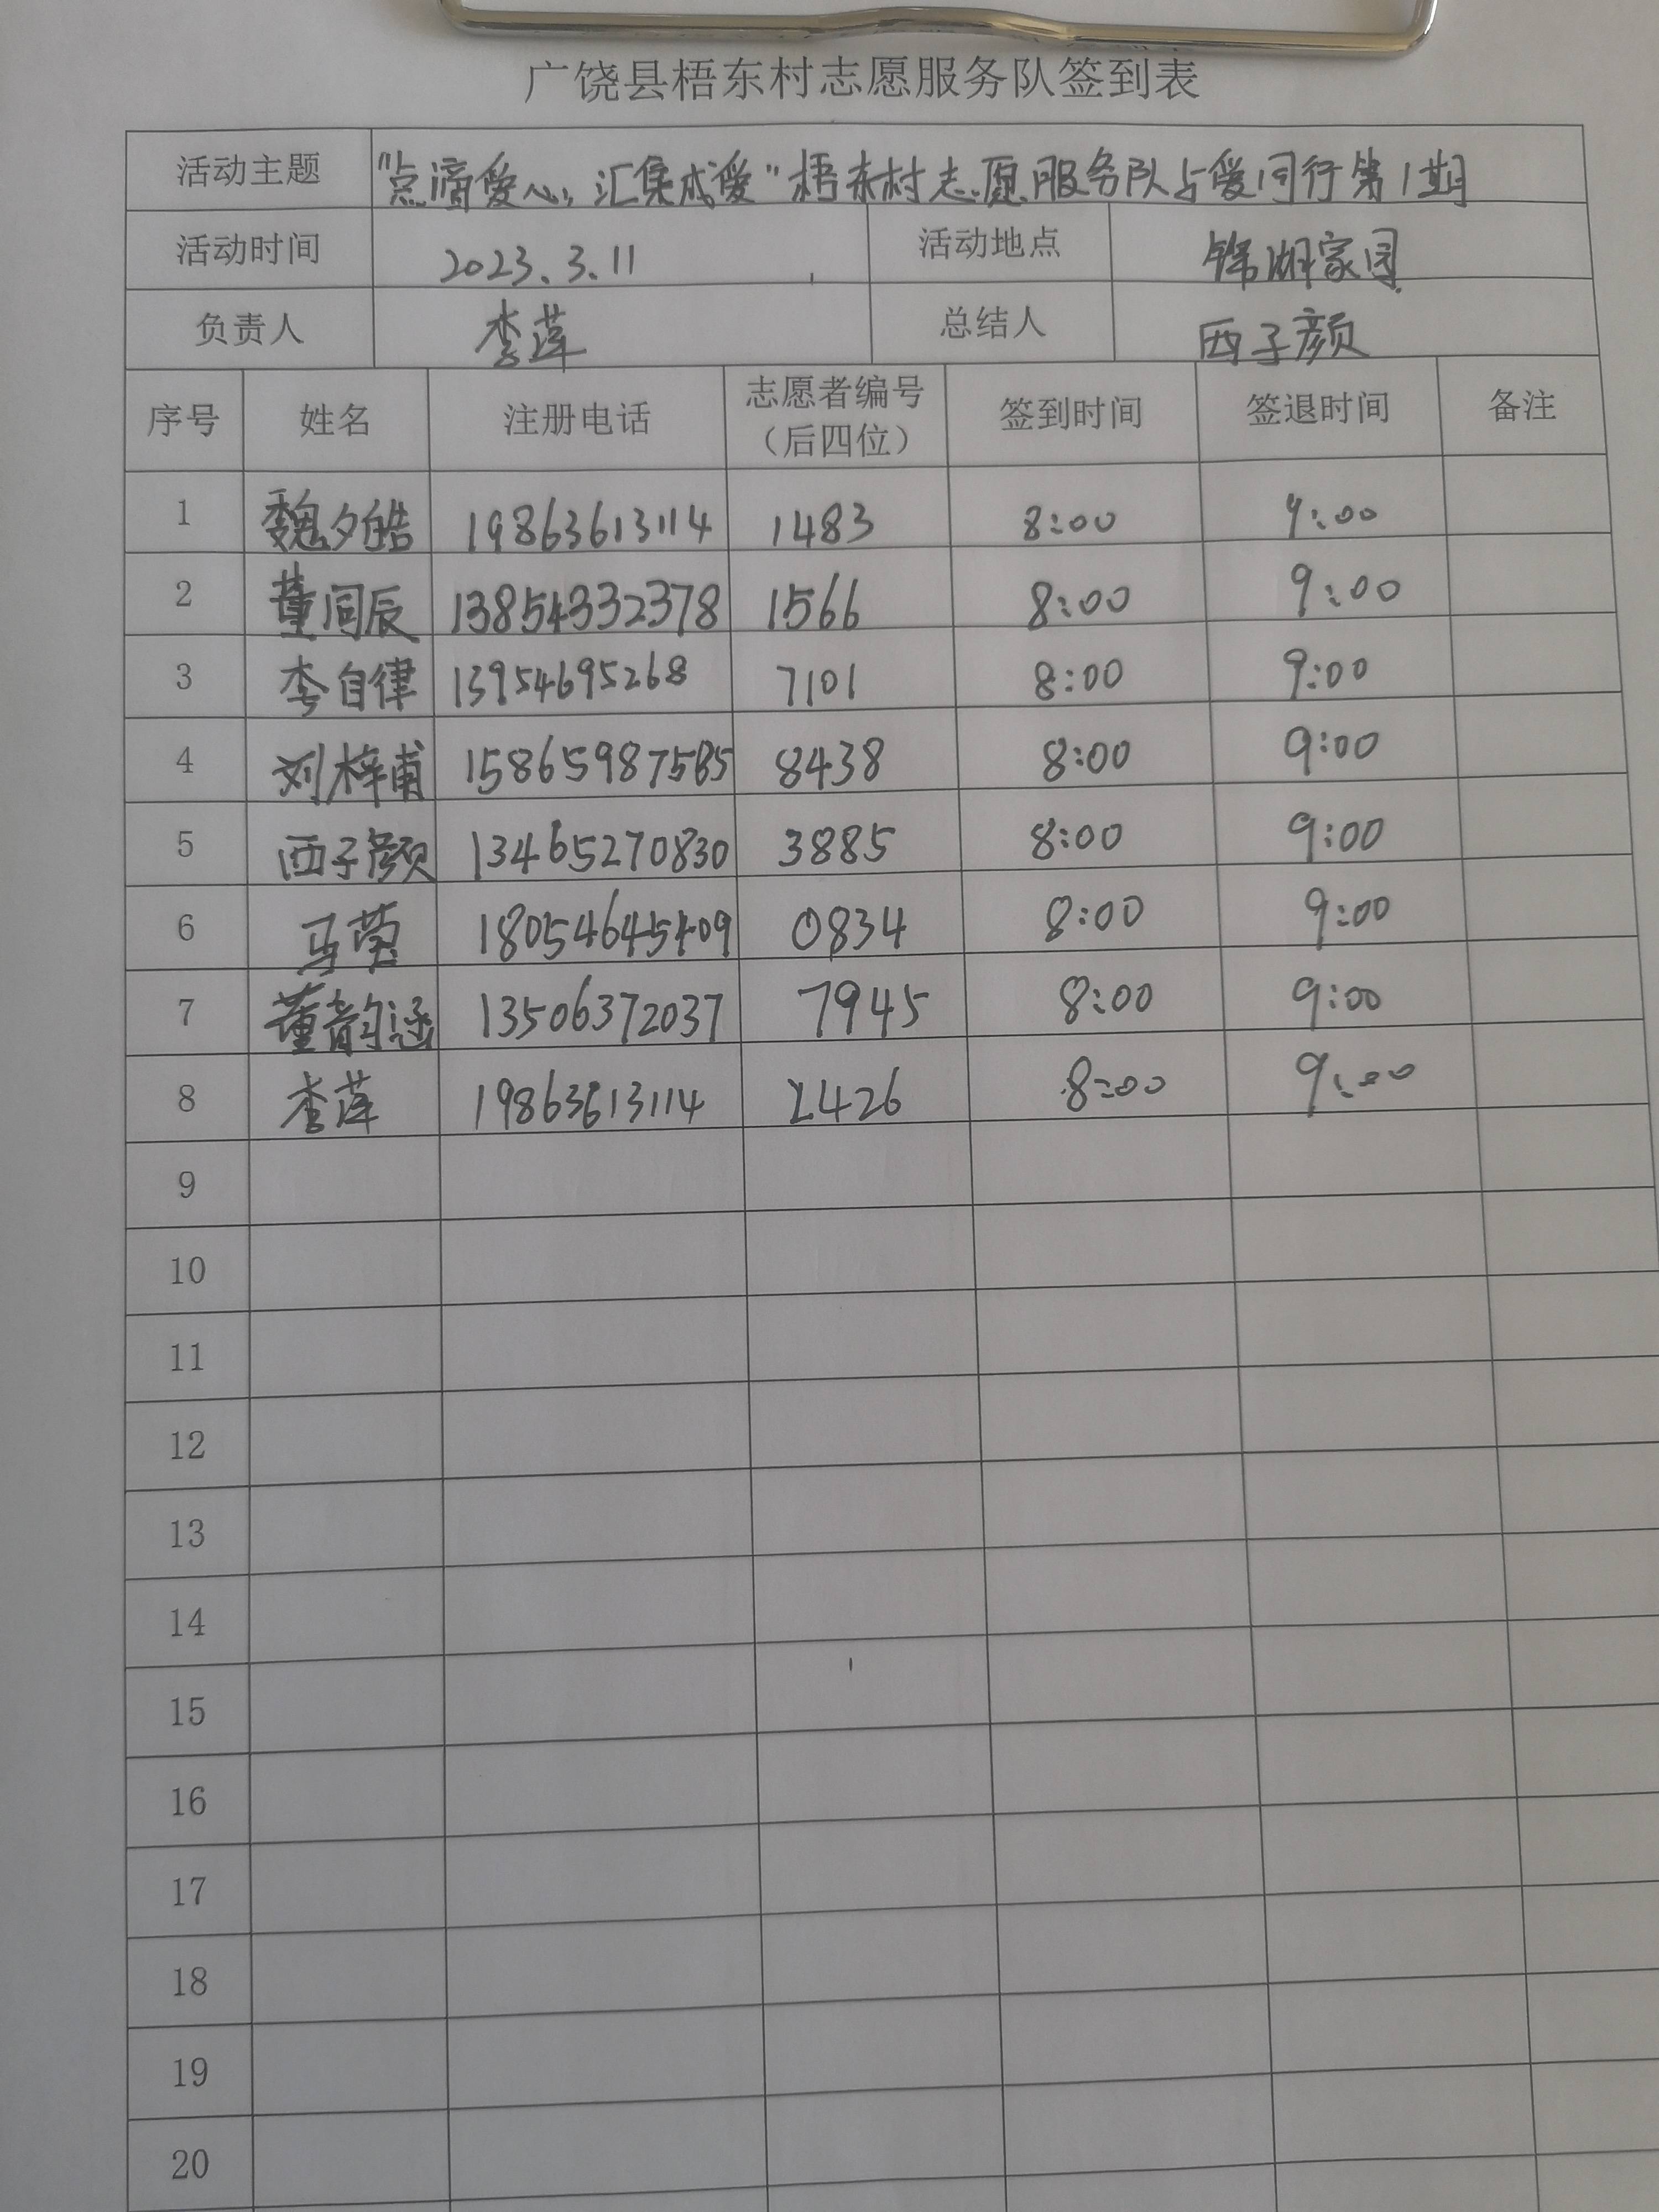 广饶县梧东村志愿服务队签到表
活动主题 "点滴爱心,汇集成爱"梧东村志愿服务队与爱同行第1期
活动时间 2023.3.11 活动地点 锦湖家园
负责人 李莲 总结人 西子颜
序号 姓名 注册电话 志愿者编号 签到时间 签退时间 备注
(后四位)
1 魏夕皓 19863613114 1483 8:00 9:00
2 董闫辰 13854332378 1566 8:00 9:00
3 李自律 13954695268 7101 8:00 9:00
4 刘梓甫 15865987585 8438 8:00 9:00
5 西子颜 13465270830 3885 8:00 9:00
6 马莹 18054645409 0834 8:00 9:00
7 董韵涵 13506372037 7945 8:00 9:00
8 李莲 19863613114 2426 8:00 9:00
9
10
11
12
13
14
15
16
17
18
19
20